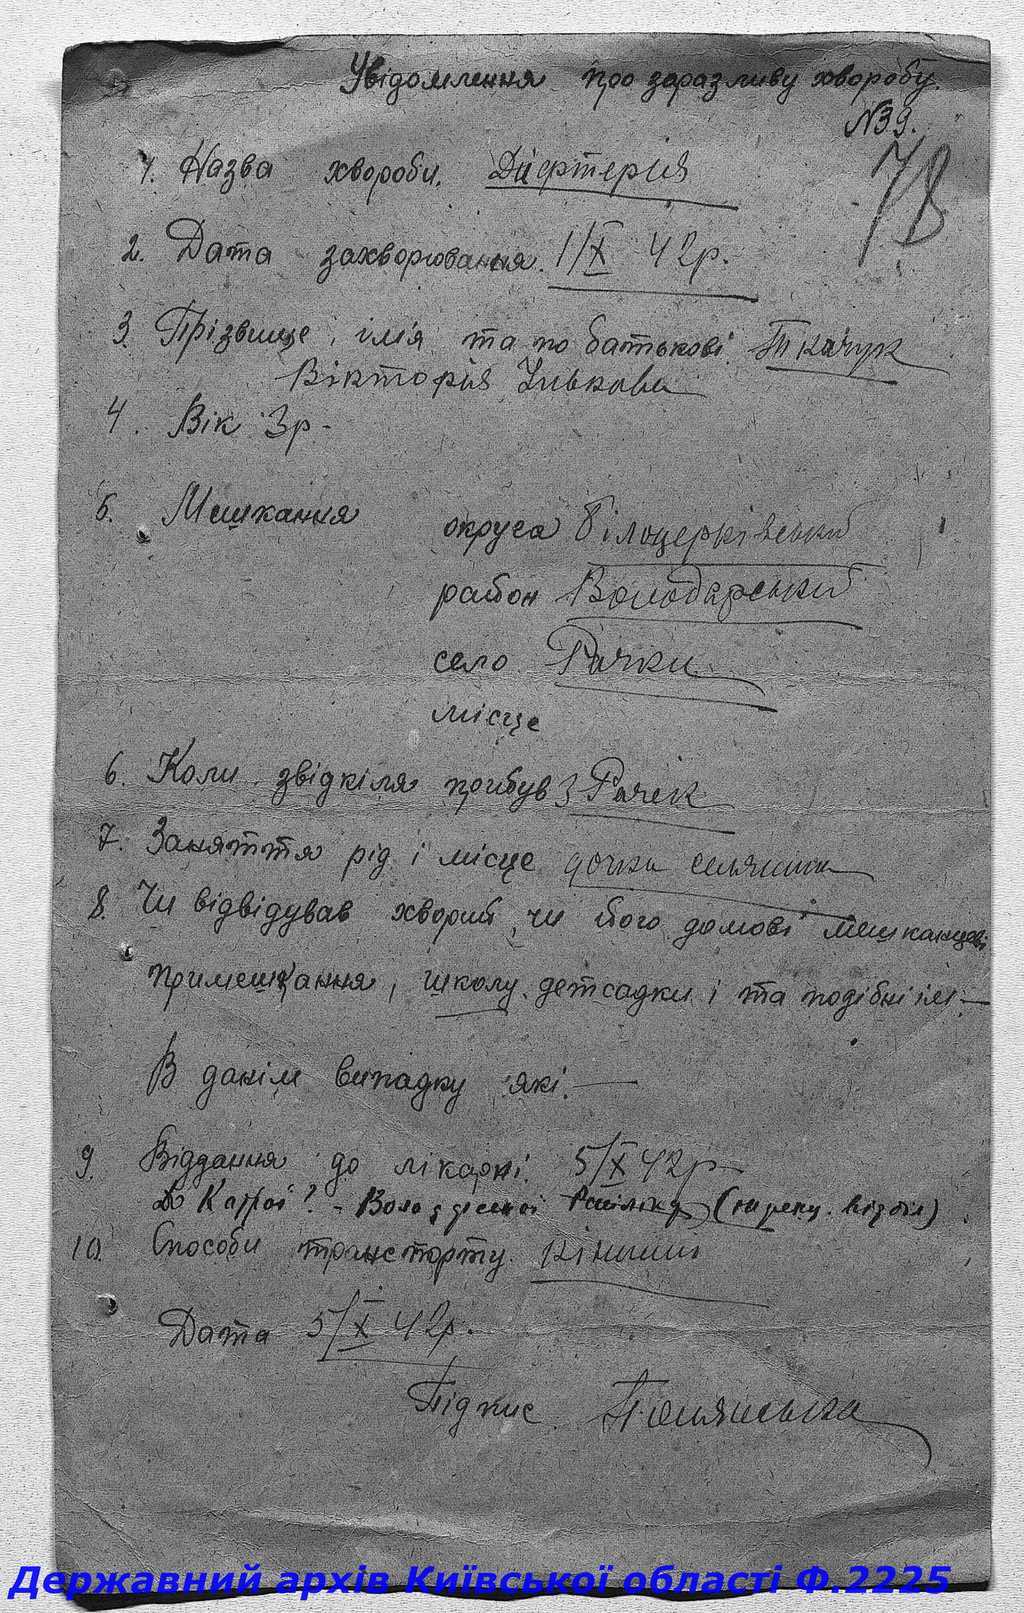 Увідомлення про заразливу хворобу.
№39.
78
1. Назва хвороби. Дифтерія
2. Дата захворювання. 1/X 42р.
3. Прізвище, ім'я та по батькові. Ткачук
Вікторія
4. Вік 3р-
5. Мешкання округа Білоцерківський
район Володарський
село Рачки
місце
6. Коли звідкіля прибув З Рачек
7. Заняття рід і місце дочка селянина
8. Чи відвідував хворий, чи його домові мешканцеві
примешкання, школу, детсадки і та подібні ім —
В данім випадку які. —
9. Віддання до лікарні. 5/X 42р
До Катрої? - (інфекц. відділ)
10. Способи транспорту. кіньми
Дата 5/X 42р.
Підпис
Державний архів Київської області Ф.2225